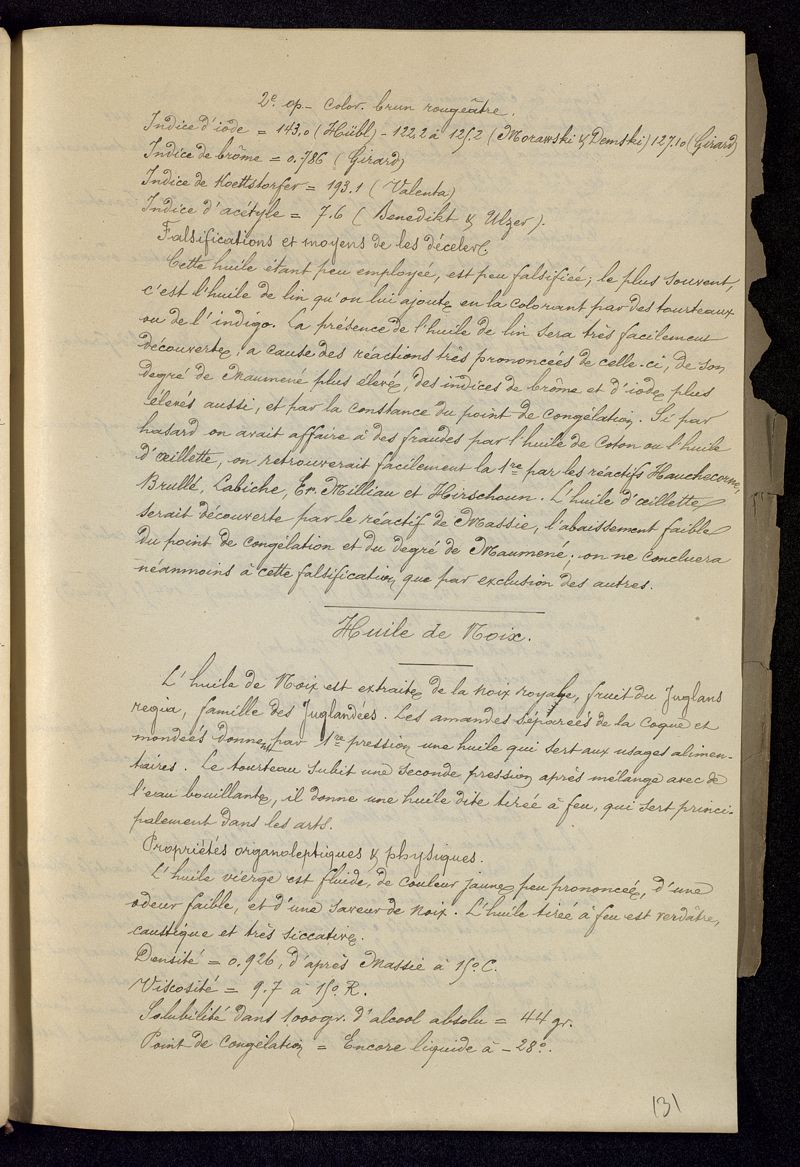 2e. op - color. brun rougeâtre.
Indice d'iode = 143.0 (Hübl) - 122.2 à 125.2 (Morawski & Demski) 127.10 (Girard)
Indice de brôme = 0.786 (Girard)
Indice de Koettstorfer = 193.1 (Valenta)
Indice d'acétyle = 7.6 (Benedikt & Ulzer).
Falsifications et moyens de les déceler.
Cette huile étant peu employée, est peu falsifiée; le plus souvent,
c'est l'huile de lin qu'on lui ajoute en la colorant par des tourteaux
ou de l'indigo. La présence de l'huile de lin sera très facilement
découverte, a cause des réactions très prononcées de celle-ci, de son
degré de Maumené plus élevé, des indices de brôme et d'iode plus
élevés aussi, et par la constance du point de congélation. Si par
hasard on avait affaire à des fraudes par l'huile de Coton ou l'huile
d'œillette, on retrouverait facilement la 1re par les réactifs Hauchecorne,
Brullé, Labiche, Er. Milliau et Hirschoun. L'huile d'œillette
serait découverte par le réactif de Massie, l'abaissement faible
du point de congélation et du degré de Maumené; on ne concluera
néanmoins à cette falsification que par exclusion des autres.
Huile de Noix.
L'huile de Noix est extraite de la noix royale, fruit du Juglans
regia, famille des Juglandées. Les amandes séparées de la coque et
mondées donnent par 1re pression une huile qui sert aux usages alimen-
taires. Le tourteau subit une seconde pression après mélange avec de
l'eau bouillante, il donne une huile dite tirée à feu, qui sert princi-
palement dans les arts.
Propriétés organoleptiques & physiques.
L'huile vierge est fluide, de couleur jaune peu prononcée, d'une
odeur faible, et d'une saveur de noix. L'huile tirée à feu est verdâtre,
caustique et très siccative.
Densité = 0.926, d'après Massie à 15° C.
Viscosité = 9.7 à 15° R.
Solubilité dans 1000 gr. d'alcool absolu = 44 gr.
Point de Congélation = Encore liquide à - 28°.
131